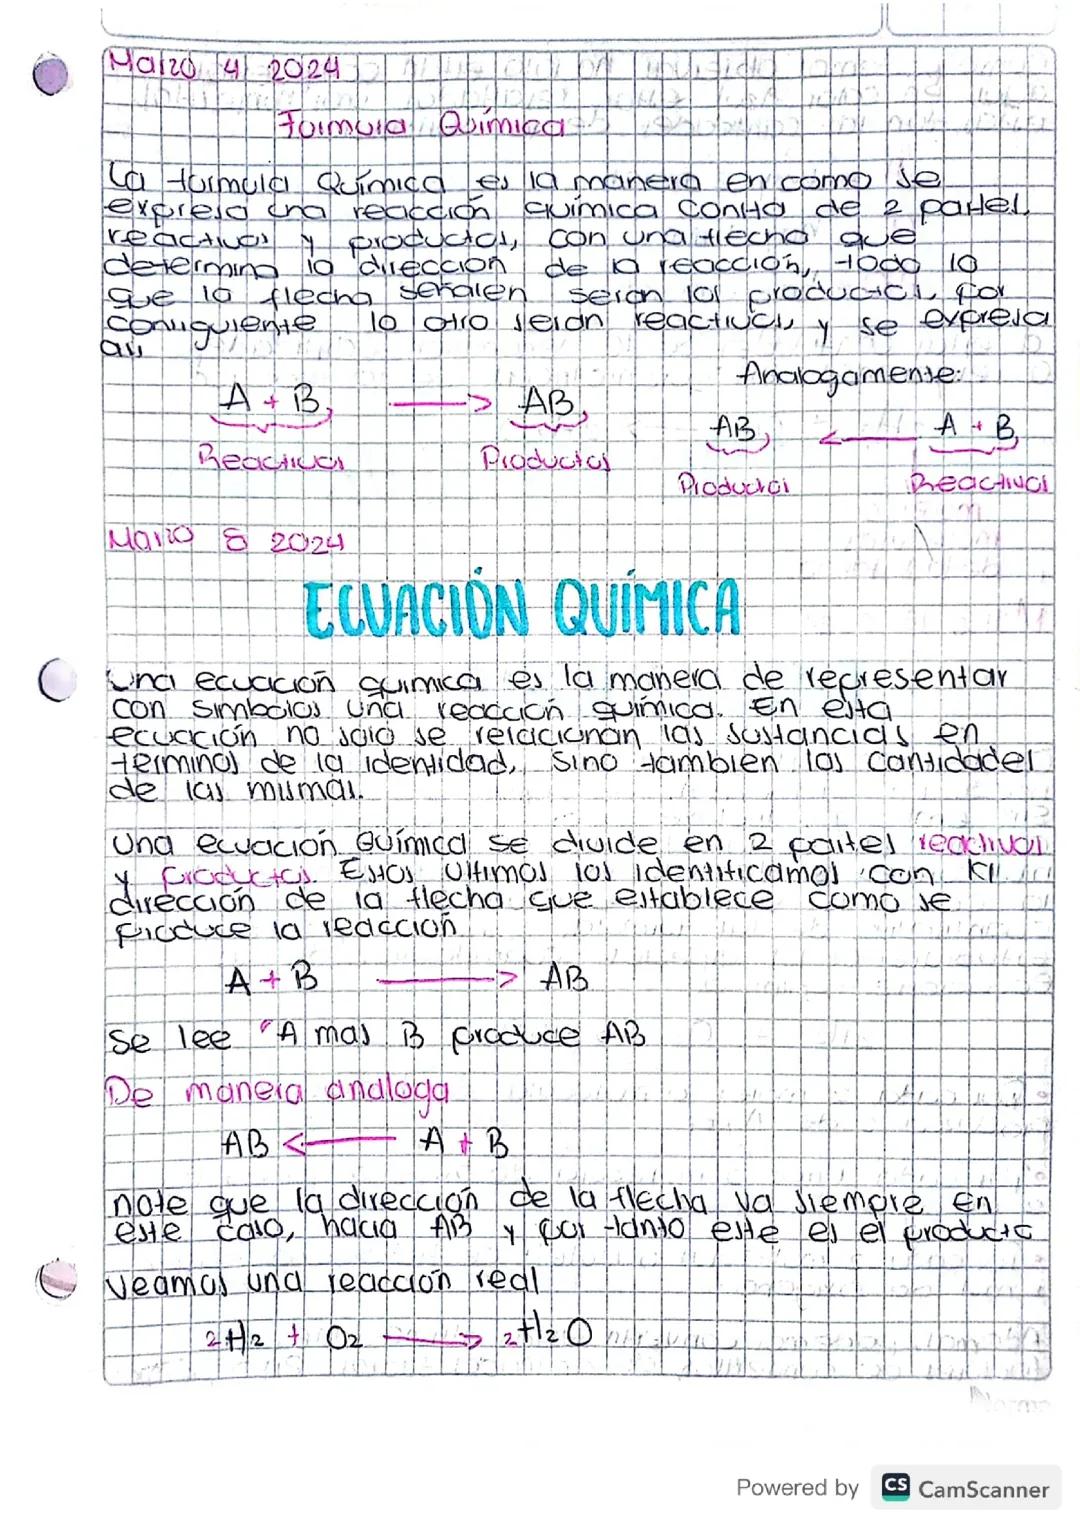 Marzo 4 2024
Formula Química
La formula Química es la manera en como se
expresa una reacción química consta de 2 partes,
reactivos y productos, con una flecha que
determina la dirección de la reacción, todo lo
que la flecha señalen seran los productos, por
consiguiente lo otro seran reactivos, y se expresa
asi,
Analogamente:
A + B, → AB,
Reactivos Productos
AB, ← A + B,
Productos Reactivos
Marzo 8 2024
ECUACIÓN QUÍMICA
una ecuación quimica es la manera de representar
con simbolos una reacción quimica. En esta
ecuación no solo se relacionan las sustancias en
terminos de la identidad, sino tambien las cantidades
de las mismas.
Una ecuación Química se divide en 2 partes reactivos
y productos Estos ultimos los identificamos con
dirección de la flecha que establece como se
produce la reacción
A + B → AB
se lee "A mas B produce AB
De manera analoga
AB ← A + B
note que la dirección de la flecha va siempre en
este caso, hacia AB y por tanto este es el producto
veamos una reacción real
2H2 + O2 → 2H2O
Norma
Powered by CS CamScanner